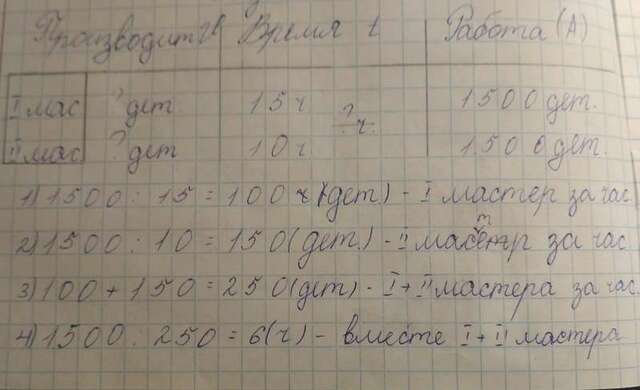 Производит Время t Работа (А)
I мас ? дет. 15 ч ? ч. 1500 дет.
II мас ? дет 10 ч 1500 дет.
1) 1500 : 15 = 100 (дет.) - I мастер за час
2) 1500 : 10 = 150 (дет.) - II мастер за час
3) 100 + 150 = 250 (дет) - I + II мастера за час
4) 1500 : 250 = 6 (ч) - вместе I + II мастера